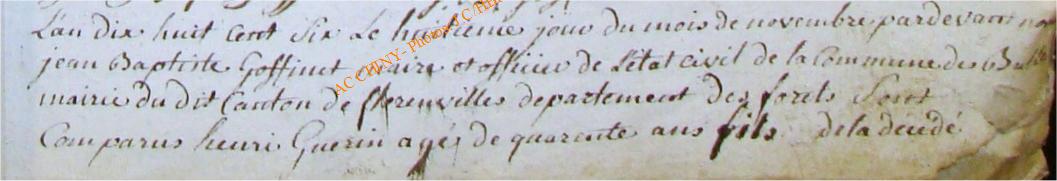 L'an dix huit cent six Le huitieme jour du mois de novembre pardevant nous
jean Baptiste Goffinet maire et officier de L'etat civil de la Commune des Bulles
mairie du dit Canton de florenvilles departement des forets Sont
Comparus henri Guerin agés de quarente ans fils de la décedé
AC CHINY - Photos J.C